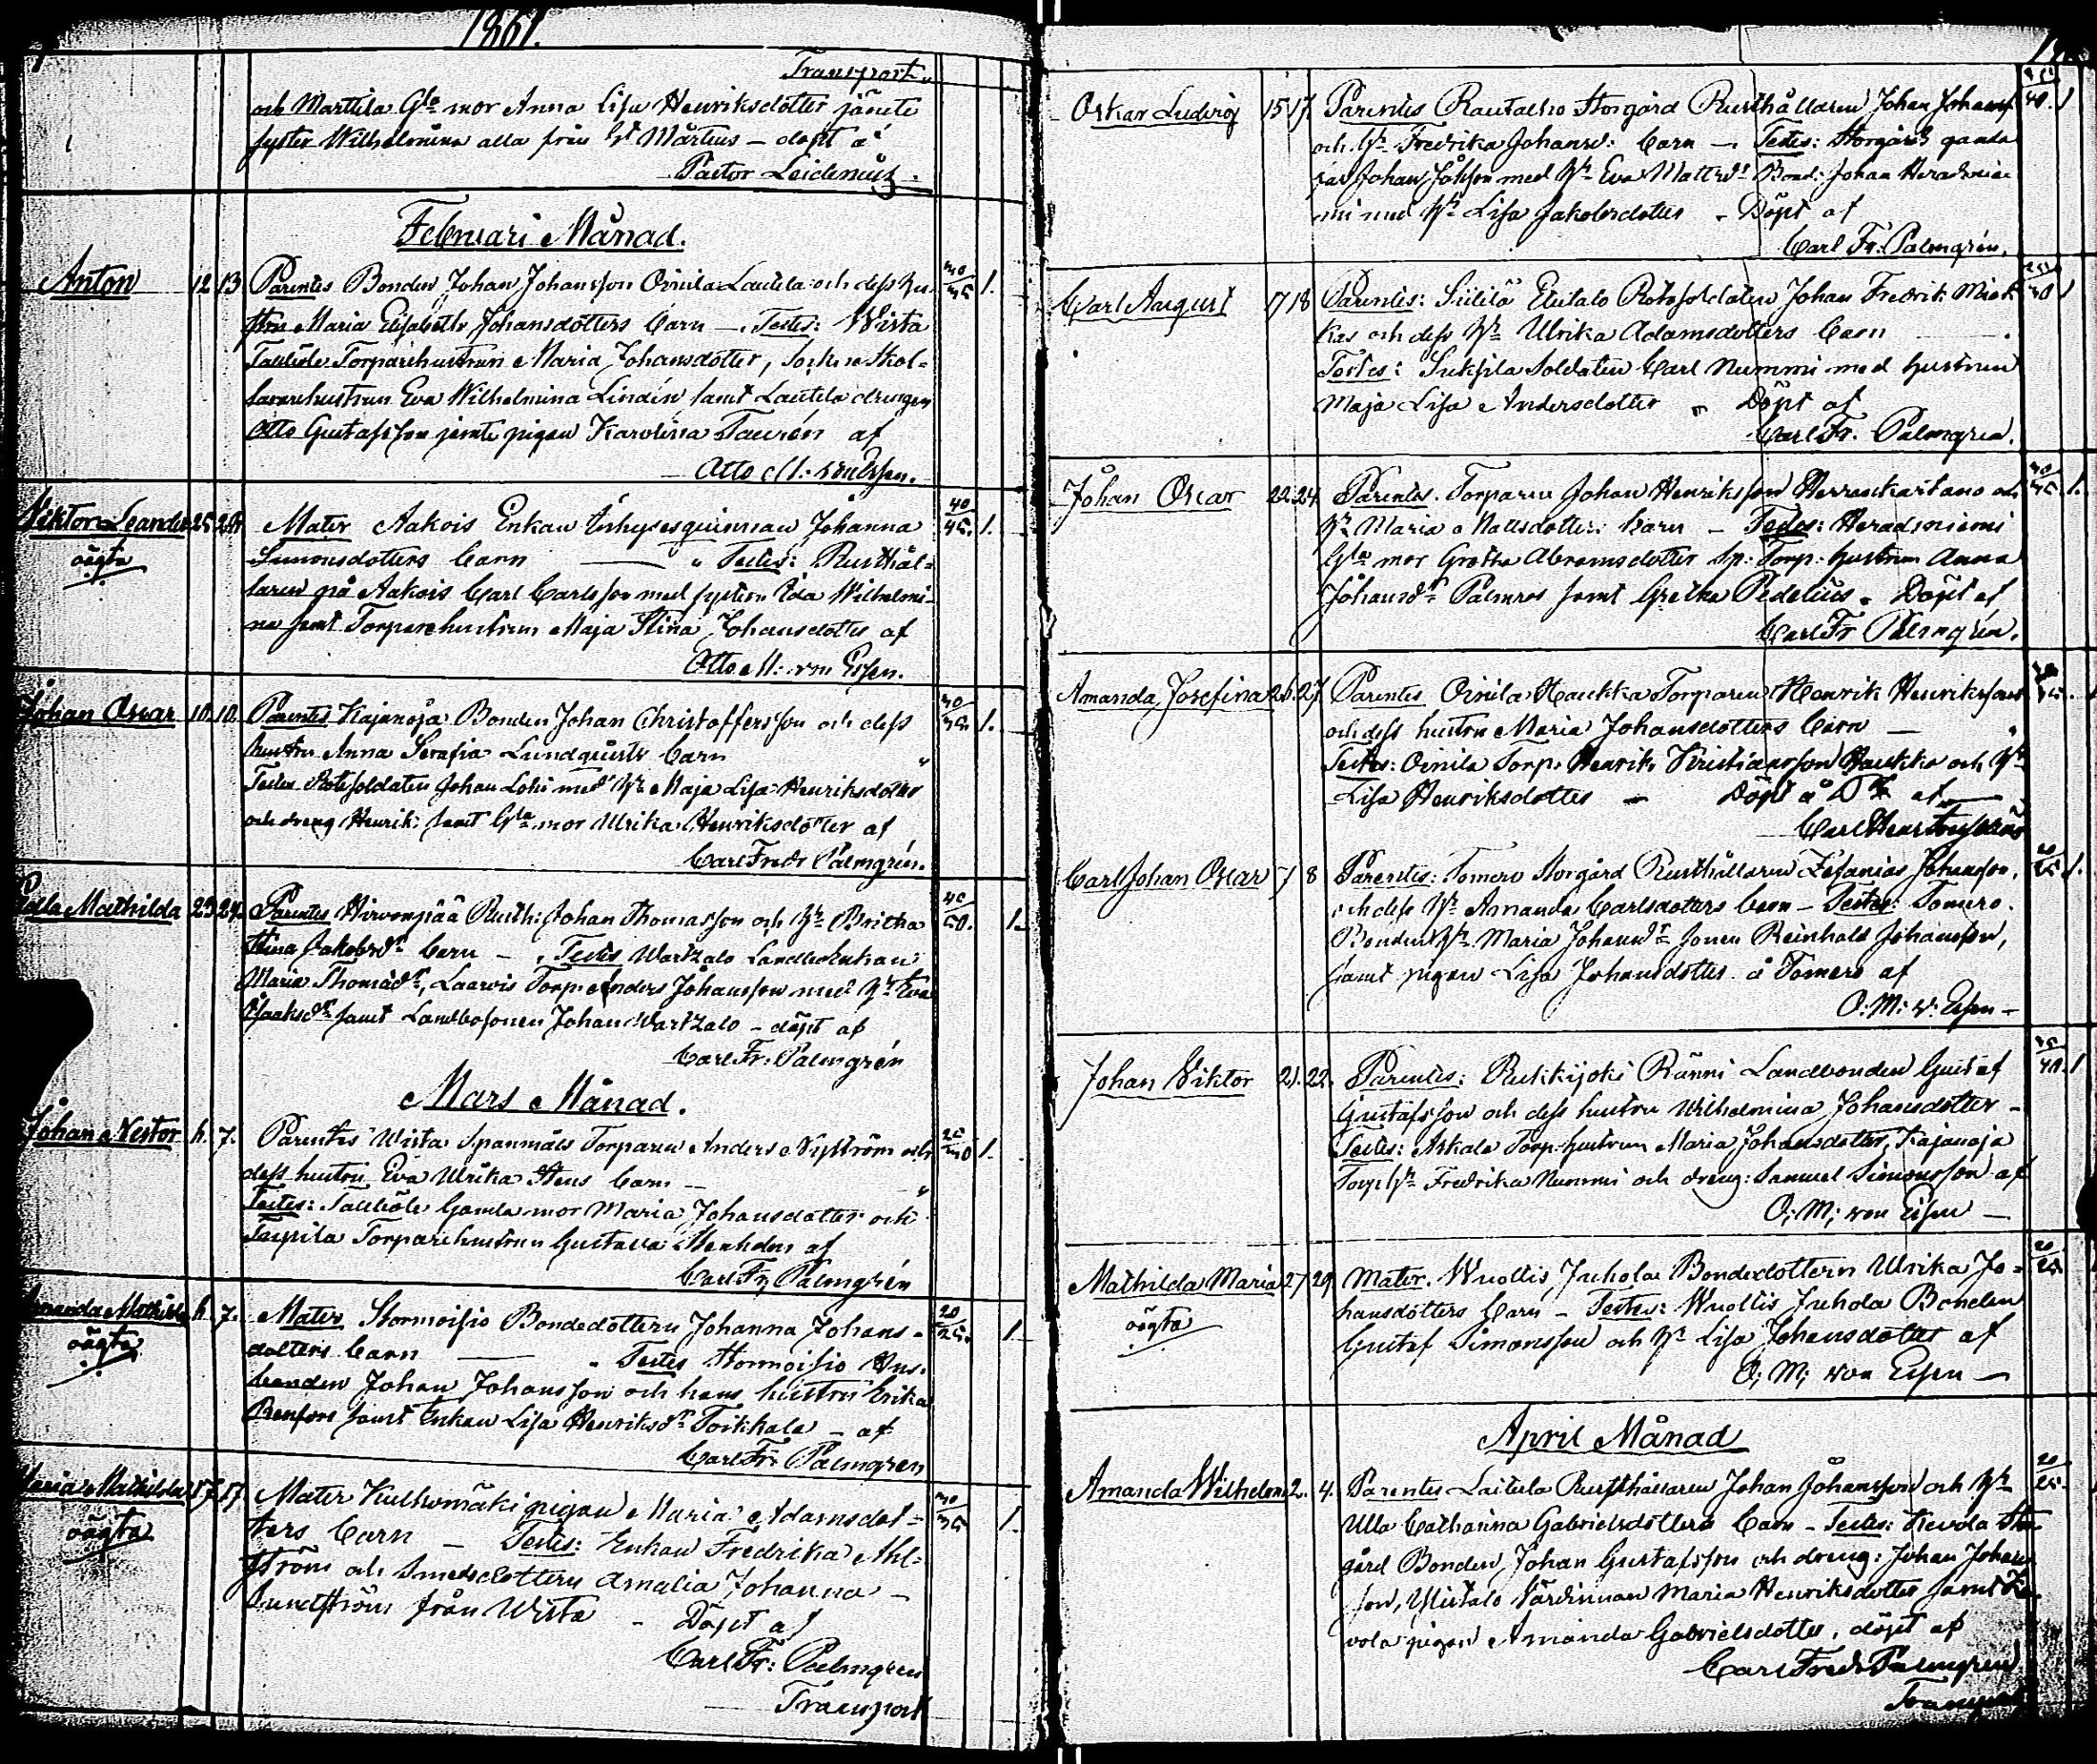 1861.
Transport.
och Marttila Gla mor Anna Lisa Henriksdotter jämte
syster Wilhelmina alla från St Mårtens – döpt af
Pastor Leidenius.
Februari Månad.
Anton 12 13 Parentes Bonden Johan Johansson Oinila Lautela och dess hu- 30/35 1.
stru Maria Elisabeth Johansdotters barn –. Testes: Wista
Torparehustrun Maria Johansdotter,
hustrun Eva Wilhelmina Lindén samt Lautela drengen
Otto Gustafsson jemte pigan Karolina Taurén af
Otto M: von Essen.
Viktor Leander 25 26 Mater Aakois Enkan Johanna 40/45. 1.
oägta
Simonsdotters barn — " Testes: Rusthål-
laren på Aakois Carl Carlsson med systern Ida Wilhelmi-
na samt Torparehustrun Maja Stina Johansdotter af
Otto M: von Essen.
Johan Oscar 10. 10. Parentes Kajanoja Bonden Johan Christoffersson och dess 30/35 1.
hustru Anna Serafia Lundqvists barn "
Testes Rotesoldaten Johan Lohi med Hu Maja Lisa Henriksdotter
och dreng Henrik samt Gla mor Ulrika Henriksdotter af
Carl Fredr Palmgrén.
Mathilda 23. 24. Parentes Hirvonpää Rusth: Johan Thomasson och Hu Britha 40/50. 1.
Stina Jakobsdr barn – . Testes Wartzalo Landboenkan
Maria Thomasdr, Laurois Torp: Anders Johansson med Hu Eva
Isaksdr samt Landbosonen Johan Wartzalo – döpt af
Carl Fr: Palmgrén
Mars Månad.
Johan Nestor 6. 7. Parentes Wista Spanmäls Torparen Anders Nyström och 1.
dess hustru Eva Ulrika Stens barn – "
Testes: Gamla mor Maria Johansdotter och
Torparehustrun Gustava Stenholm af
Carl Fr, Palmgrén
Amanda Mathilda 6. 7. Mater Stormoisio Bondedottern Johanna Johans- 20/25. 1
oägta
dotters barn — " Testes Stormoisio Hus-
bonden Johan Johansson och hans hustru Erika
Renfors samt Enkan Lisa Henriksdr Toikkala – af
Carl Fr: Palmgren
Maria Mathilda 17. 17. Mater Kulhomäki pigan Maria Adamsdot- 30/35 1
oägta
ters barn – Testes: Enkan Fredrika Ahl-
ström och Smedsdottern Amalia Johanna
Sundström från Wista – Döpt af
Carl Fr: Palmgren
Transport
Oskar Ludvig 15 17. Parentes Rautalho Storgård Rusthållaren Johan Johanss 40. 1
och Hu Fredrika Johansd: barn –. Testes: Storgårds gamla
far Johan Johsson med Hu Eva Mattsdr Bond: Johan Heradsnie-
mi med Hu Lisa Jakobsdotter – Döpt af
Carl Fr: Palmgrén.
Carl August 17 18 Parentes: Siitilä Eutalo Rotesoldaten Johan Fredrik Miek- 30 1
kas och dess Hu Ulrika Adamsdotters barn
Testes: Suksila Soldaten Carl Nummi med hustrun
Maja Lisa Andersdotter " Döpt af
Carl Fr. Palmgren.
Johan Oscar 22. 24. Parentes. Torparen Johan Henriksson Herrankartano och 30/35. 1.
Hu Maria Mattsdotters barn – Testes: Heradsniemi
Gla mor Gretha Abramsdotter sp: Torp: hustrun Anna
Johansdr Palmros samt Gretha Pedelius. Döpt af
Carl Fr Palmgrén.
Amanda Josefina 26. 27. Parentes Oinila Haukka Torparen Henrik Henrikssons
och dess hustru Maria Johansdotters barn –
Testes: Oinila Torp. Henrik Kristiansson Haukka och Hu
Lisa Henriksdotter – Döpt af
Carl
Carl Johan Oscar 7 8 Parentes: Tomero Storgård Rusthållaren Zefanias Johansson, 20/25 1.
och dess Hu Amanda Carlsdotters barn – Testes: Tomero.
Bonden Hu Maria Johansdr sonen Reinhold Johansson,
samt pigan Lisa Johansdotter å Tomero af
O: M: v: Essen –
Johan Viktor 21. 22. Parentes: Rukkijoki Ränni Landbonden Gustaf 40. 1
Gustafsson och dess hustru Wilhelmina Johansdotter –
Testes: Askala Torp: hustrun Maria Johansdotter, Kajanoja
Torp: Hu Fredrika Nummi och dreng: Samuel Simonsson af
O: M: von Essen –
Mathilda Maria 27 29. Mater. Wuollis Juhola Bondedottern Ulrika Jo- 20/25.
oägta
hansdotters barn – Testes: Wuollis Juhola Bonden
Gustaf Simonsson och Hu Lisa Johansdotter af
O: M: von Essen –
April Månad
Amanda Wilhelm: 2. 4. Parentes Laitula Rusthållaren Johan Johansson och Hu 20/25.
Ulla Catharina Gabrielsdotters barn – Testes: Kevola Stor-
gård Bonden Johan Gustafsson och dreng: Johan Johans
son, Wärdinnan Maria Henriksdotter samt Ke-
vola pigan Amanda Gabrielsdotter, döpt af
Carl Fredr Palmgren
Transport